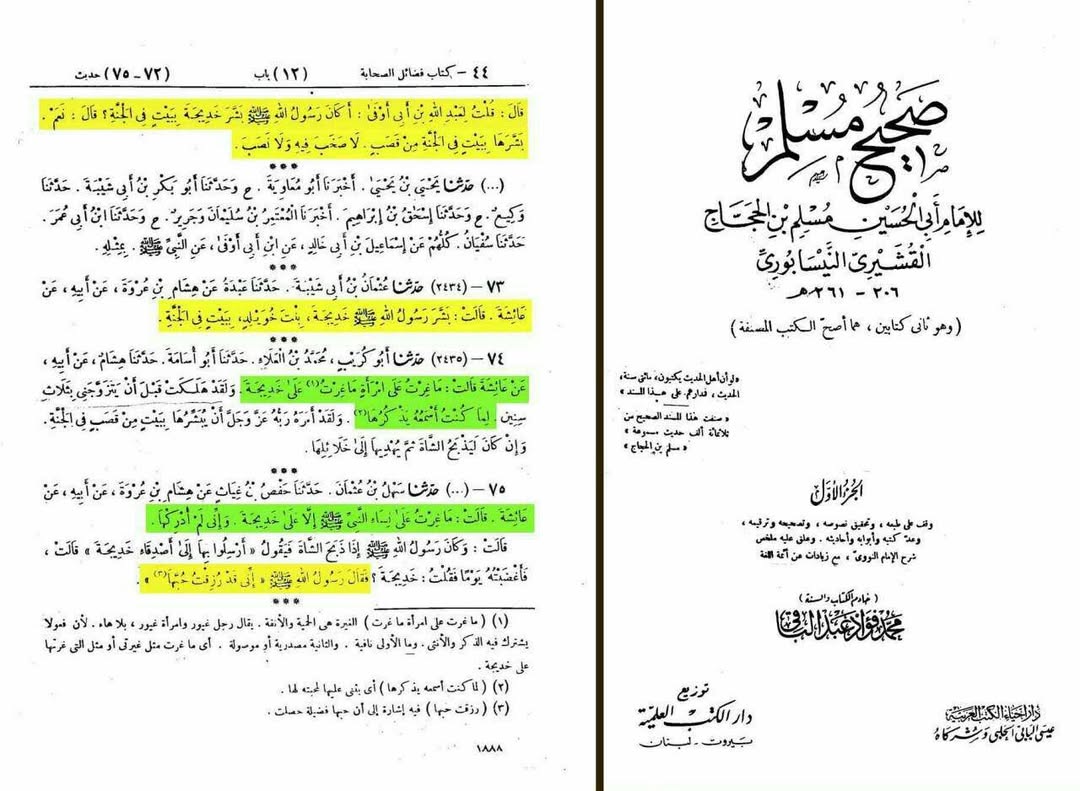 صَحِيحُ مُسْلِم
لِلإِمَامِ أَبِي الْحُسَيْنِ مُسْلِمِ بْنِ الْحَجَّاجِ
الْقُشَيْرِيِّ النَّيْسَابُورِيِّ
٢٠٦ - ٢٦١ هـ
(وهو ثانى كتابين ، هما أصحّ الكتب المصنفة)
«لو أن أهل الحديث يكتبون، مائتى سنة،
الحديث ، فدارهم على هذا المسند»
« صنفت هذا المسند الصحيح من
ثلاثمائة ألف حديث مسموعة »
« مسلم بن الحجاج »
الجزء الأول
وقف على طبعه ، وتحقيق نصوصه ، وتصحيحه وترقيمه ،
وعدّ كتبه وأبوابه وأحاديثه . وعلق عليه ملخص
شرح الإمام النووىّ ، مع زيادات عن أئمة اللغة
( خادم الكتاب والسنة )
محمد فؤاد عبد الباقي
دار إحياء الكتب العربية
عيسى البابى الحلبى وشركاه
توزيع
دار الكتب العلمية
بيروت - لبنان
٤٤ - كتاب فضائل الصحابة (١٢) باب (٧٢ - ٧٥) حديث
قَالَ : قُلْتُ لِعَبْدِ اللهِ بْنِ أَبِي أَوْفَىٰ : أَكَانَ رَسُولُ اللهِ ﷺ بَشَّرَ خَدِيجَةَ بِبَيْتٍ فِي الْجَنَّةِ ؟ قَالَ : نَعَمْ .
بَشَّرَهَا بِبَيْتٍ فِي الْجَنَّةِ مِنْ قَصَبٍ . لَا صَخَبَ فِيهِ وَلَا نَصَبَ .
***
(...) حَدَّثَنَا يَحْيَىٰ بْنُ يَحْيَىٰ . أَخْبَرَنَا أَبُو مُعَاوِيَةَ . ح وَحَدَّثَنَا أَبُو بَكْرِ بْنُ أَبِي شَيْبَةَ . حَدَّثَنَا
وَكِيعٌ . ح وَحَدَّثَنَا إِسْحَٰقُ بْنُ إِبْرَاهِيمَ . أَخْبَرَنَا الْمُعْتَمِرُ بْنُ سُلَيْمَانَ وَجَرِيرٌ . ح وَحَدَّثَنَا ابْنُ أَبِي عُمَرَ .
حَدَّثَنَا سُفْيَانُ . كُلُّهُمْ عَنْ إِسْمَاعِيلَ بْنِ أَبِي خَالِدٍ ، عَنِ ابْنِ أَبِي أَوْفَىٰ ، عَنِ النَّبِيِّ ﷺ . بِمِثْلِهِ .
***
٧٣ - (٢٤٣٤) حَدَّثَنَا عُثْمَانُ بْنُ أَبِي شَيْبَةَ . حَدَّثَنَا عَبْدَةُ عَنْ هِشَامِ بْنِ عُرْوَةَ ، عَنْ أَبِيهِ ، عَنْ
عَائِشَةَ . قَالَتْ : بَشَّرَ رَسُولُ اللهِ ﷺ خَدِيجَةَ ، بِنْتَ خُوَيْلِدٍ ، بِبَيْتٍ فِي الْجَنَّةِ .
***
٧٤ - (٢٤٣٥) حَدَّثَنَا أَبُو كُرَيْبٍ ، مُحَمَّدُ بْنُ الْعَلَاءِ . حَدَّثَنَا أَبُو أُسَامَةَ . حَدَّثَنَا هِشَامٌ ، عَنْ أَبِيهِ ،
عَنْ عَائِشَةَ قَالَتْ : مَا غِرْتُ عَلَى امْرَأَةٍ مَا غِرْتُ(١) عَلَىٰ خَدِيجَةَ . وَلَقَدْ هَلَكَتْ قَبْلَ أَنْ يَتَزَوَّجَنِي بِثَلَاثِ
سِنِينَ . لِمَا كُنْتُ أَسْمَعُهُ يَذْكُرُهَا(٢) . وَلَقَدْ أَمَرَهُ رَبُّهُ عَزَّ وَجَلَّ أَنْ يُبَشِّرَهَا بِبَيْتٍ مِنْ قَصَبٍ فِي الْجَنَّةِ .
وَإِنْ كَانَ لَيَذْبَحُ الشَّاةَ ثُمَّ يُهْدِيهَا إِلَىٰ خَلَائِلِهَا .
***
٧٥ - (...) حَدَّثَنَا سَهْلُ بْنُ عُثْمَانَ . حَدَّثَنَا حَفْصُ بْنُ غِيَاثٍ عَنْ هِشَامِ بْنِ عُرْوَةَ ، عَنْ أَبِيهِ ، عَنْ
عَائِشَةَ . قَالَتْ : مَا غِرْتُ عَلَىٰ نِسَاءِ النَّبِيِّ ﷺ إِلَّا عَلَىٰ خَدِيجَةَ . وَإِنِّي لَمْ أُدْرِكْهَا .
قَالَتْ : وَكَانَ رَسُولُ اللهِ ﷺ إِذَا ذَبَحَ الشَّاةَ فَيَقُولُ « أَرْسِلُوا بِهَا إِلَىٰ أَصْدِقَاءِ خَدِيجَةَ » قَالَتْ ،
فَأَغْضَبْتُهُ يَوْمًا فَقُلْتُ : خَدِيجَةَ ؟ فَقَالَ رَسُولُ اللهِ ﷺ « إِنِّي قَدْ رُزِقْتُ حُبَّهَا(٣) » .
***
(١) ( ما غرت على امرأة ما غرت ) الغيرة هى الحمية والأنفة . يقال رجل غيور وامرأة غيور ، بلا هاء . لأن فعولا
يشترك فيه الذكر والأنثى . وما الأولى نافية . والثانية مصدرية أو موصولة . أى ما غرت مثل غيرتى أو مثل التى غرتها
على خديجة .
(٢) ( لما كنت أسمعه يذكرها ) أى يثنى عليها لمحبته لها .
(٣) ( رزقت حبها ) فيه إشارة إلى أن حبها فضيلة حصلت .
١٨٨٨